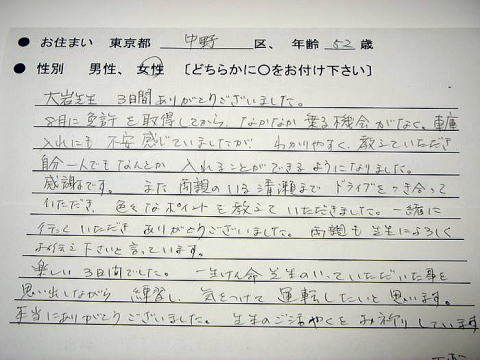 ● お住まい 東京都 中野 区、 年齢 52 歳
● 性別 男性、 女性 〔どちらかに〇をお付け下さい〕
大岩先生 3日間ありがとうございました。
8月に免許を取得してから、なかなか乗る機会がなく。車庫
入れにも 不安感じていましたが わかりやすく、教えていただき
自分一人でもなんとか 入れることができるようになりました。
感謝です。 また 両親のいる清瀬まで ドライブをつき合って
いただき、色々なポイントを教えていただきました。一緒に
行っていただき ありがとうございました。 両親も先生によろしく
お伝え下さいと言っています。
楽しい3日間でした。 一生けん命 先生のいっていただいた事を
思い出しながら 練習し、気をつけて 運転したいと思います。
本当にありがとうございました。 先生のご活やくをお祈りしています